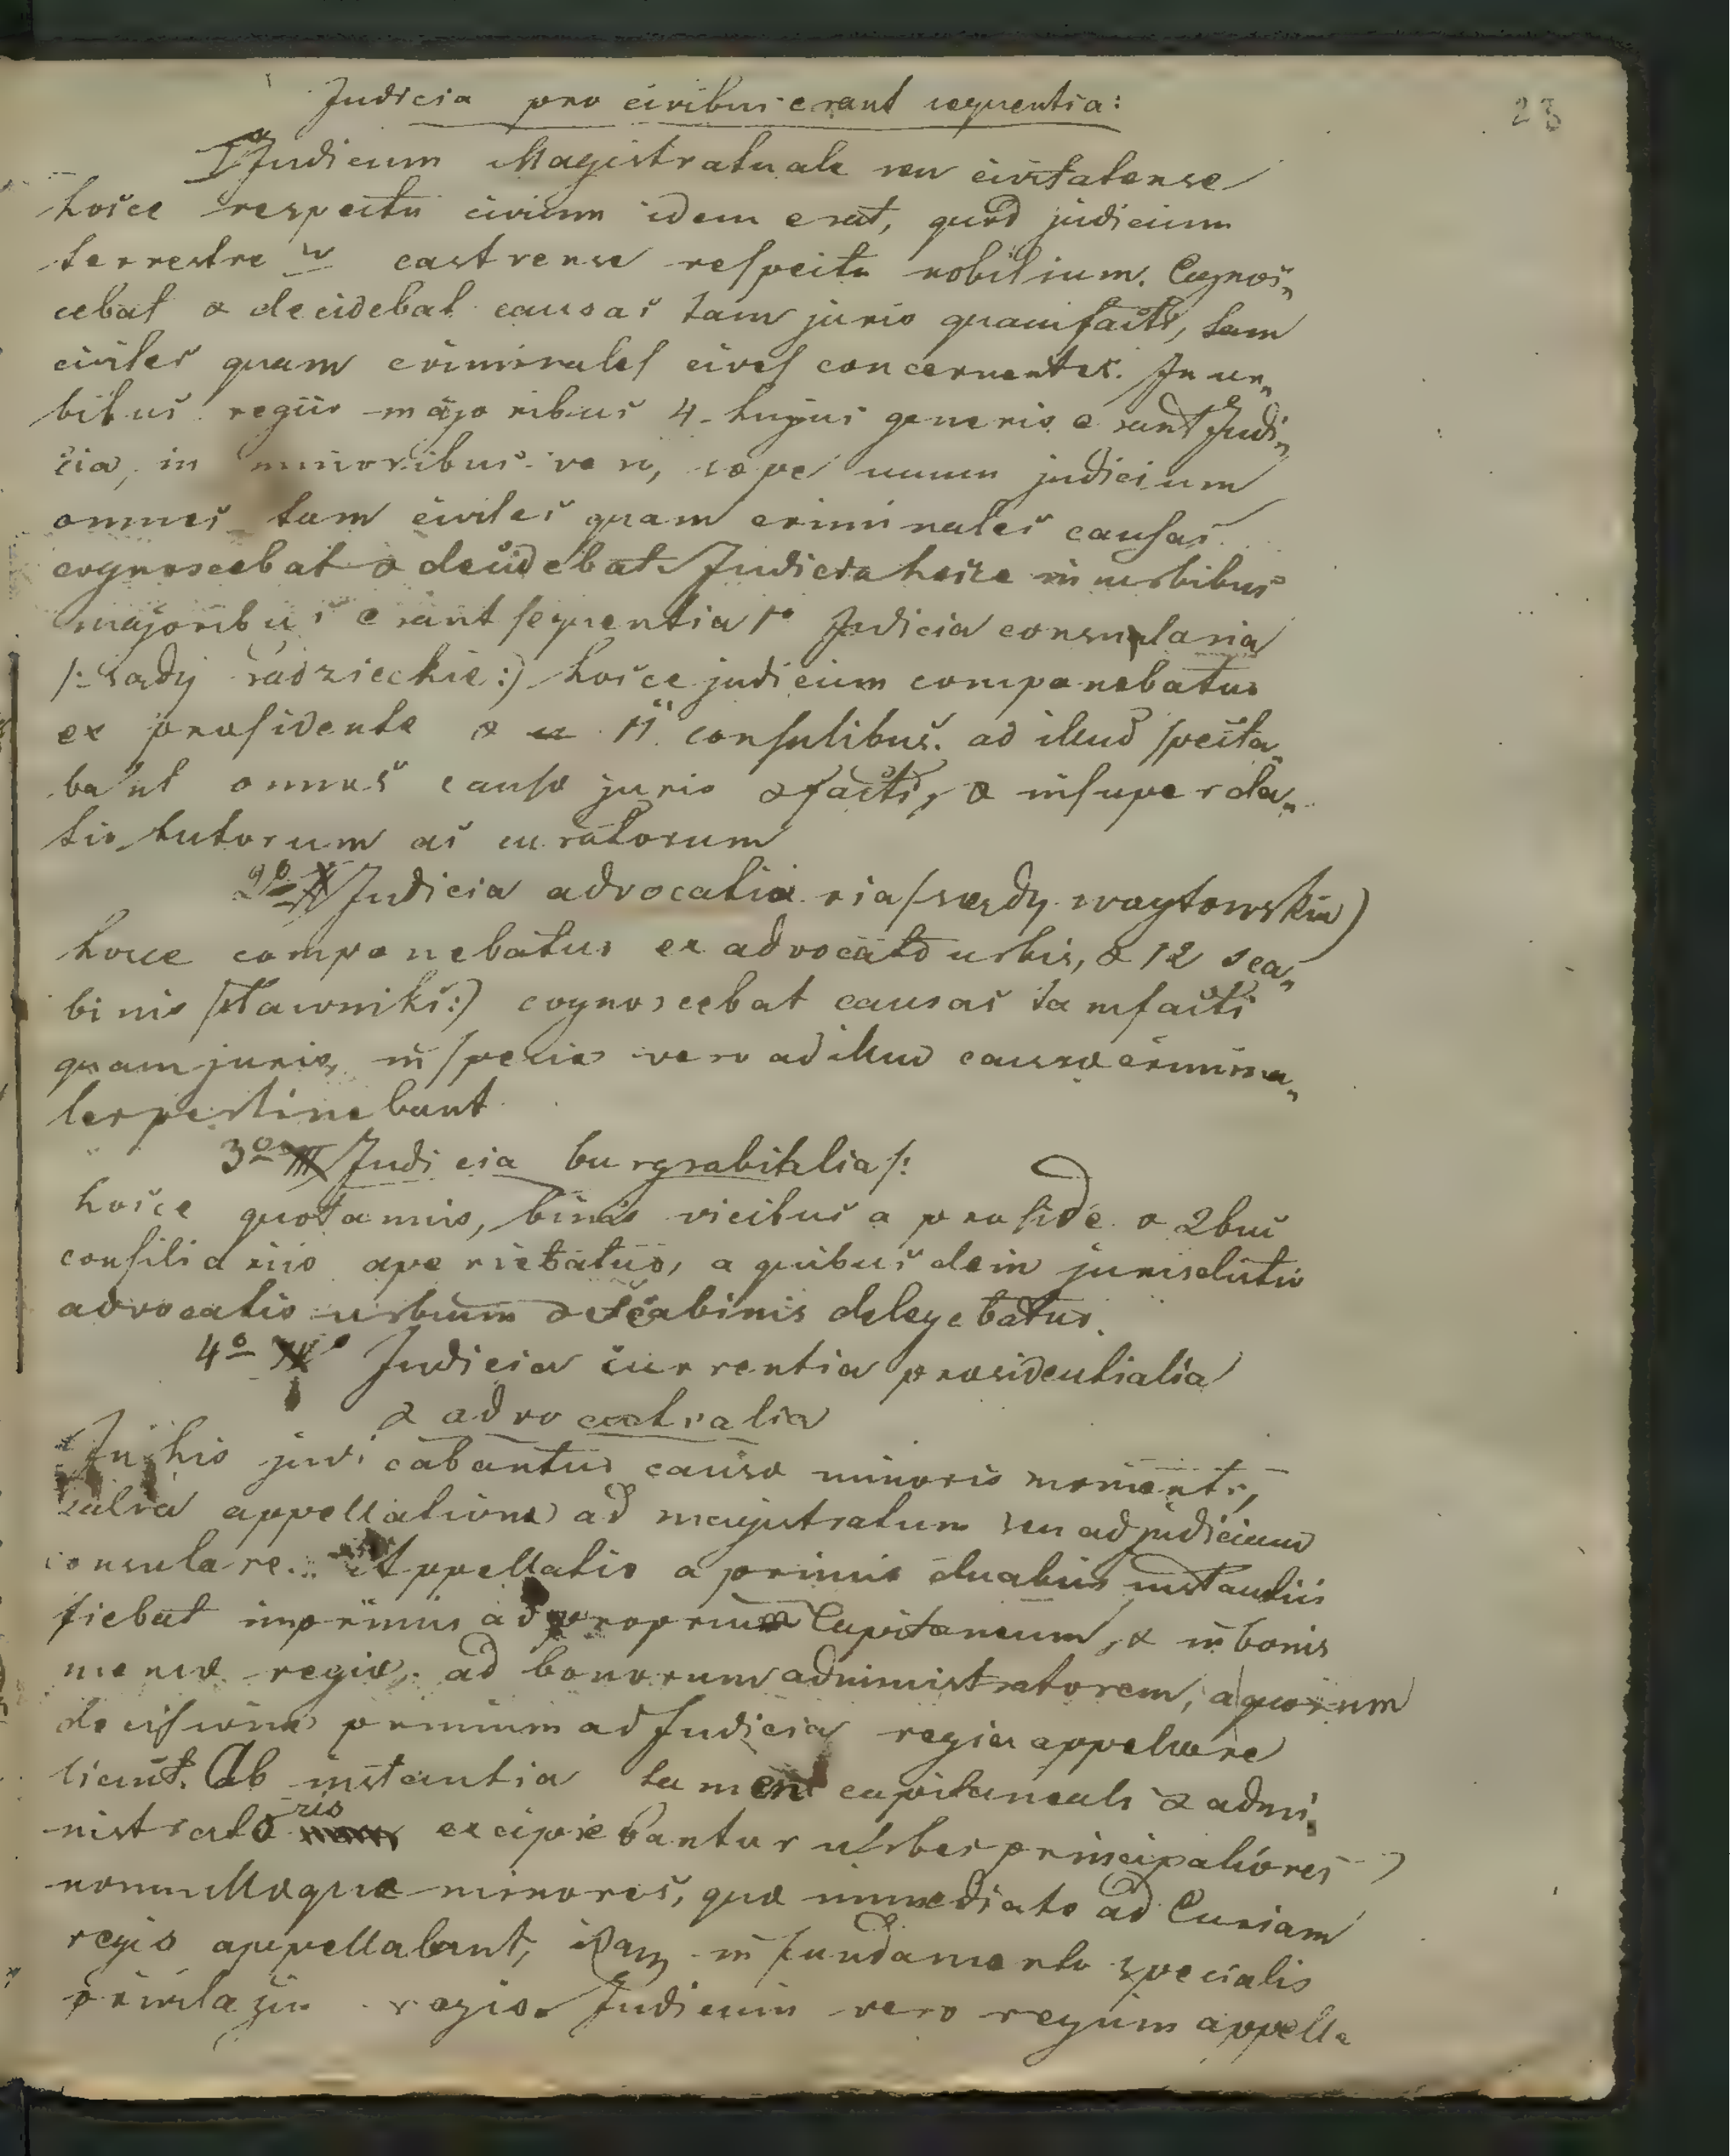 23
Judicia pro civibus erant sequentia:
I Judicium Magistratuale seu civitatense
hocce respectu civium idem erat, quod judicium
terrestre v castrense respectu nobilium. Cognos„
cebat & decidebat causas tam juris quam facti, tam
civiles quam criminales cives concernentes. In ur„
bibus regiis majoribus 4. hujus generis erant Judi„
cia, in minoribus vero, sæpe unum judicium
omnes tam civiles quam criminales causas
cognoscebat & decidebat Judicia hocce in urbibus
majoribus erant sequentia 1o Judicia consularia
/: sady radzieckie :) hocce judicium componebatur
ex præsidente & 11 consulibus. ad illud specta„
bant omnes causæ juris & facti, & insuper da„
tio tutorum ac curatorum
2o Judicia advocatiaria /: sędy woytowskie)
hocce componebatur ex advocato urbis, & 12 sca„
binis /: ławniki :) cognoscebat causas tam facti
quam juris, in specie vero ad illud causæ crimina„
les pertinebant
3o Judicia burgrabialia /:
hocce quotannis, binis vicibus a præside & 2bus
consiliariis aperiebatur, a quibus dein jurisdictio
advocatis urbium & scabinis delegebatur.
4o Judicia currentia præsidentialia
& advocatialia
In his judicabantur causæ minoris momenti,
salva appellatione ad magistratum seu ad judicium
consulare. Appellatio a primis duabus instantiis
fiebat imprimis ad proprium Capitaneum, & in bonis
mensæ regiæ, ad bonorum administratorem, a quorum
decisione primum ad Judicia regia appellare
licuit. Ab instantia tamen capitaneali & admi„
nistratoris excipiebantur urbes principaliores
nonnullæque minores, quæ immediate ad Curiam
regis appellabant, idq in fundamento specialis
privilegii regis. Judicium vero regium appella